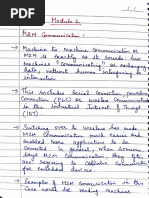 Module 2
M2M Communication :-
→ Machine to Machine Communication or
M2M is exactly as it sounds: two
machines "Communicating" or exchanging
data, without human interfacing or
interaction
→ This includes serial connection, powerline
connection (PLC) or wireless communication
in the Industrial Internet of Things
(IOT)
→ Switching over to wireless has made
M2M communication much easier and
enabled more application to be
connected. In general, when someone
says M2M communication, they often
are referring to cellular communication
for embedded devices
→ Examples of M2M communication in this
case would be vending machines